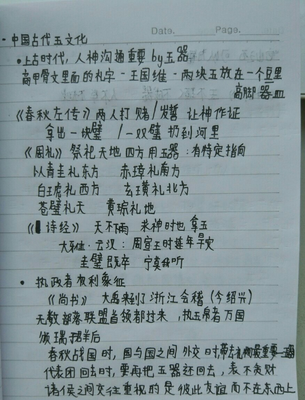 Date. Page.
• 中国古代玉文化
• 上古时代，人神沟通重要 by 玉器
甲骨文里面的礼字 - 王国维 - 两块玉放在一个豆里
高脚器皿
《春秋左传》两人打赌/发誓 让神作证
拿出一块璧 / 一双璧 扔到河里
《周礼》祭祀天地四方用玉器：有特定指向
以青圭礼东方 赤璋礼南方
白琥礼西方 玄璜礼北方
苍璧礼天 黄琮礼地
《诗经》天不雨 求神时也拿玉
大雅·云汉：周宣王时连年旱灾
圭璧既卒 宁莫我听
• 执政者权利象征
《尚书》大禹来到了浙江会稽（今绍兴）
无数部落联盟首领都过来，执玉帛者万国
颁瑞
春秋战国时，国与国之间外交时带
代表团回去时，要再把玉器还回去，表不贪财
诸侯之间交往重视的是彼此友谊而不在东西上